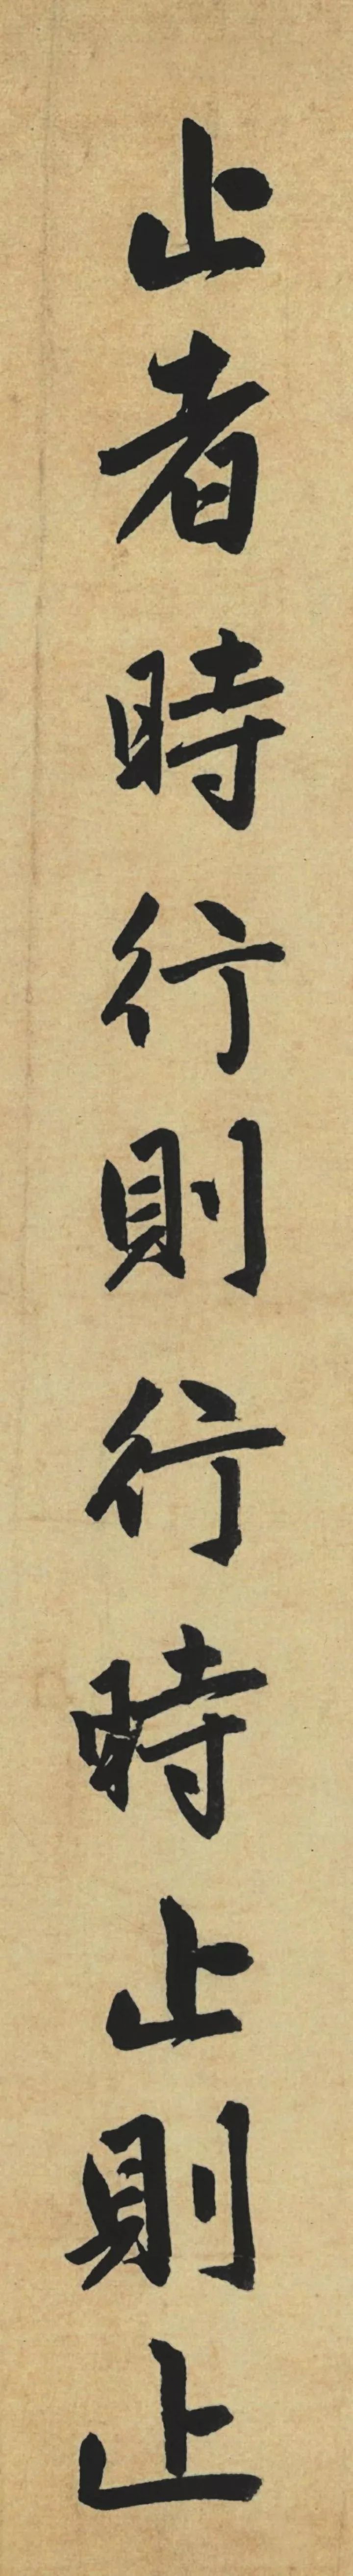 止者時行則行時止則止